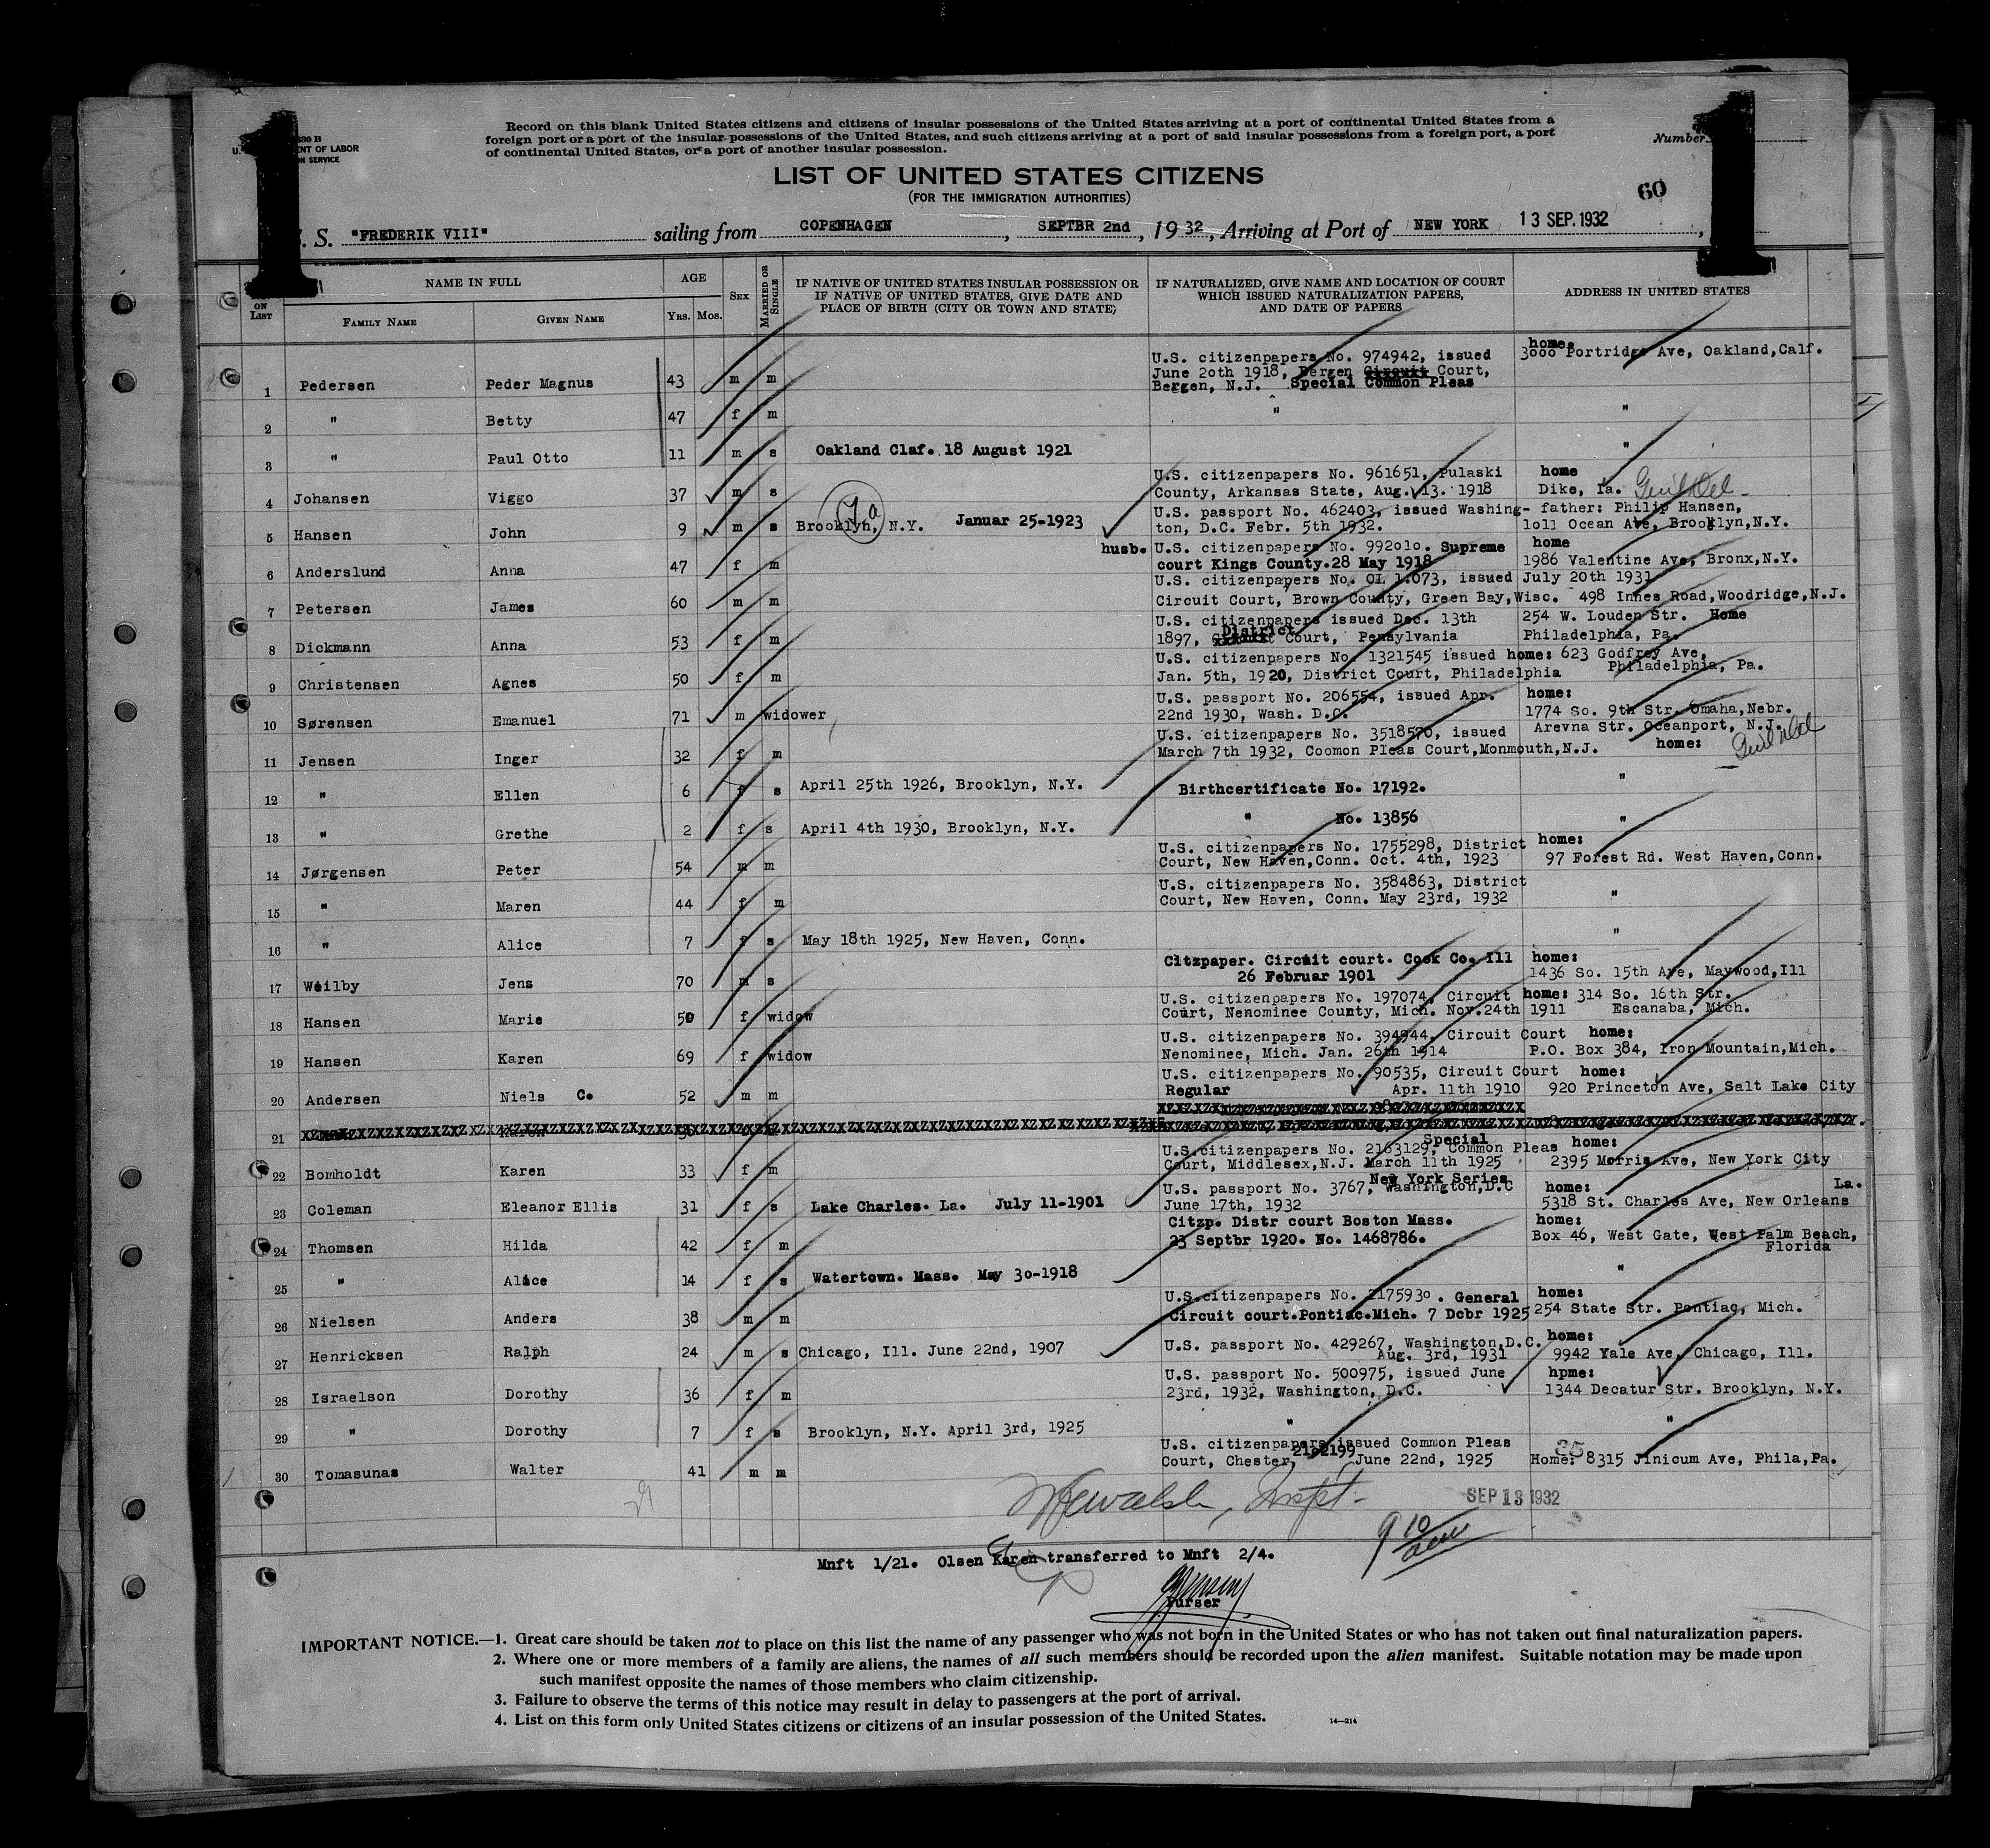 1 1
Record on this blank United States citizens and citizens of insular possessions of the United States arriving at a port of continental United States from a
foreign port or a port of the insular possessions of the United States, and such citizens arriving at a port of said insular possessions from a foreign port, a port
of continental United States, or a port of another insular possession.
ENT OF LABOR
ON SERVICE
Number
LIST OF UNITED STATES CITIZENS
(FOR THE IMMIGRATION AUTHORITIES)
60
S. "FREDERIK VIII" sailing from COPENHAGEN, SEPTBR 2nd, 1932, Arriving at Port of NEW YORK 13 SEP. 1932
ON LIST
NAME IN FULL
FAMILY NAME GIVEN NAME
AGE
YRS. MOS.
SEX
MARRIED OR SINGLE
IF NATIVE OF UNITED STATES INSULAR POSSESSION OR
IF NATIVE OF UNITED STATES, GIVE DATE AND
PLACE OF BIRTH (CITY OR TOWN AND STATE)
IF NATURALIZED, GIVE NAME AND LOCATION OF COURT
WHICH ISSUED NATURALIZATION PAPERS,
AND DATE OF PAPERS
ADDRESS IN UNITED STATES
U.S. citizenpapers No. 974942, issued home:
June 20th 1918, Bergen Circuit Court, 3000 Portridge Ave, Oakland,Calf.
1 Pedersen Peder Magnus 43 m m Bergen, N.J. Special Common Pleas
2 " Betty 47 f m " "
3 " Paul Otto 11 m s Oakland Claf. 18 August 1921 "
U.S. citizenpapers No. 961651, Pulaski home
4 Johansen Viggo 37 m s County, Arkansas State, Aug. 13. 1918 Dike, Ia.
U.S. passport No. 462403, issued Washing- father: Philip Hansen,
5 Hansen John 9 m s Brooklyn, N.Y. Januar 25-1923 ton, D.C. Febr. 5th 1932. 1011 Ocean Ave, Brooklyn,N.Y.
husb. U.S. citizenpapers No. 992010. Supreme home
6 Anderslund Anna 47 f m court Kings County.28 May 1918 1986 Valentine Ave, Bronx,N.Y.
U.S. citizenpapers No. OL 1.073, issued July 20th 1931
7 Petersen James 60 m m Circuit Court, Brown County, Green Bay,Wisc. 498 Innes Road,Woodridge,N.J.
U.S. citizenpapers issued Dec. 13th 254 W. Louden Str. Home
8 Dickmann Anna 53 f m 1897, District Court, Pensylvania Philadelphia, Pa.
U.S. citizenpapers No. 1321545 issued home: 623 Godfrey Ave,
9 Christensen Agnes 50 f m Jan. 5th, 1920, District Court, Philadelphia Philadelphia, Pa.
U.S. passport No. 206554, issued Apr. home:
10 Sørensen Emanuel 71 m widower 22nd 1930, Wash. D.C. 1774 So. 9th Str. Omaha,Nebr.
U.S. citizenpapers No. 3518570, issued Arevna Str. Oceanport, N.J.
11 Jensen Inger 32 f m March 7th 1932, Coomon Pleas Court,Monmouth,N.J. home:
12 " Ellen 6 f s April 25th 1926, Brooklyn, N.Y. Birthcertificate No. 17192. "
13 " Grethe 2 f s April 4th 1930, Brooklyn, N.Y. " No. 13856 "
U.S. citizenpapers No. 1755298, District home:
14 Jørgensen Peter 54 m m Court, New Haven,Conn. Oct. 4th, 1923 97 Forest Rd. West Haven,Conn.
U.S. citizenpapers No. 3584863, District
15 " Maren 44 f m Court, New Haven, Conn. May 23rd, 1932 "
16 " Alice 7 f s May 18th 1925, New Haven, Conn. "
Citzpaper. Circuit court. Cook Co. Ill home:
17 Weilby Jens 70 m s 26 Februar 1901 1436 So. 15th Ave, Maywood,Ill
U.S. citizenpapers No. 197074, Circuit home: 314 So. 16th Str.
18 Hansen Marie 50 f widow Court, Nenominee County, Mich. Nov.24th 1911 Escanaba, Mich.
U.S. citizenpapers No. 394944, Circuit Court home:
19 Hansen Karen 69 f widow Nenominee, Mich. Jan. 26th 1914 P.O. Box 384, Iron Mountain,Mich.
U.S. citizenpapers No. 90535, Circuit Court home:
20 Andersen Niels C. 52 m m Regular Apr. 11th 1910 920 Princeton Ave, Salt Lake City
21
U.S.citizenpapers No. 2163129, Special Common Pleas home:
22 Bomholdt Karen 33 f m Court, Middlesex,N.J. March 11th 1925 2395 Morris Ave, New York City
New York Series
U.S. passport No. 3767, Washington,D.C home: La.
23 Coleman Eleanor Ellis 31 f s Lake Charles. La. July 11-1901 June 17th, 1932 5318 St. Charles Ave, New Orleans
Citzp. Distr court Boston Mass. home:
24 Thomsen Hilda 42 f m 23 Septbr 1920. No. 1468786. Box 46, West Gate, West Palm Beach,
Florida
25 " Alice 14 f s Watertown. Mass. May 30-1918 "
U.S.citizenpapers No. 2175930. General home:
26 Nielsen Anders 38 m m Circuit court.Pontiac.Mich. 7 Dcbr 1925 254 State Str. Pontiac, Mich.
U.S. passport No. 429267, Washington,D.C. home:
27 Henricksen Ralph 24 m s Chicago, Ill. June 22nd, 1907 Aug. 3rd, 1931 9942 Yale Ave, Chicago, Ill.
U.S. passport No. 500975, issued June hpme:
28 Israelson Dorothy 36 f m 23rd, 1932, Washington, D.C. 1344 Decatur Str. Brooklyn, N.Y.
29 " Dorothy 7 f s Brooklyn, N.Y. April 3rd, 1925 " "
U.S. citizenpapers issued Common Pleas
30 Tomasunas Walter 41 m m Court, Chester, 2102199 June 22nd, 1925 Home: 8315 Jinicum Ave, Phila,Pa.
Walsh, Inspt.
SEP 13 1932
9 10
Mnft 1/21. Olsen Karen transferred to Mnft 2/4.
Purser
IMPORTANT NOTICE.—1. Great care should be taken not to place on this list the name of any passenger who was not born in the United States or who has not taken out final naturalization papers.
2. Where one or more members of a family are aliens, the names of all such members should be recorded upon the alien manifest. Suitable notation may be made upon
such manifest opposite the names of those members who claim citizenship.
3. Failure to observe the terms of this notice may result in delay to passengers at the port of arrival.
4. List on this form only United States citizens or citizens of an insular possession of the United States.
14—214